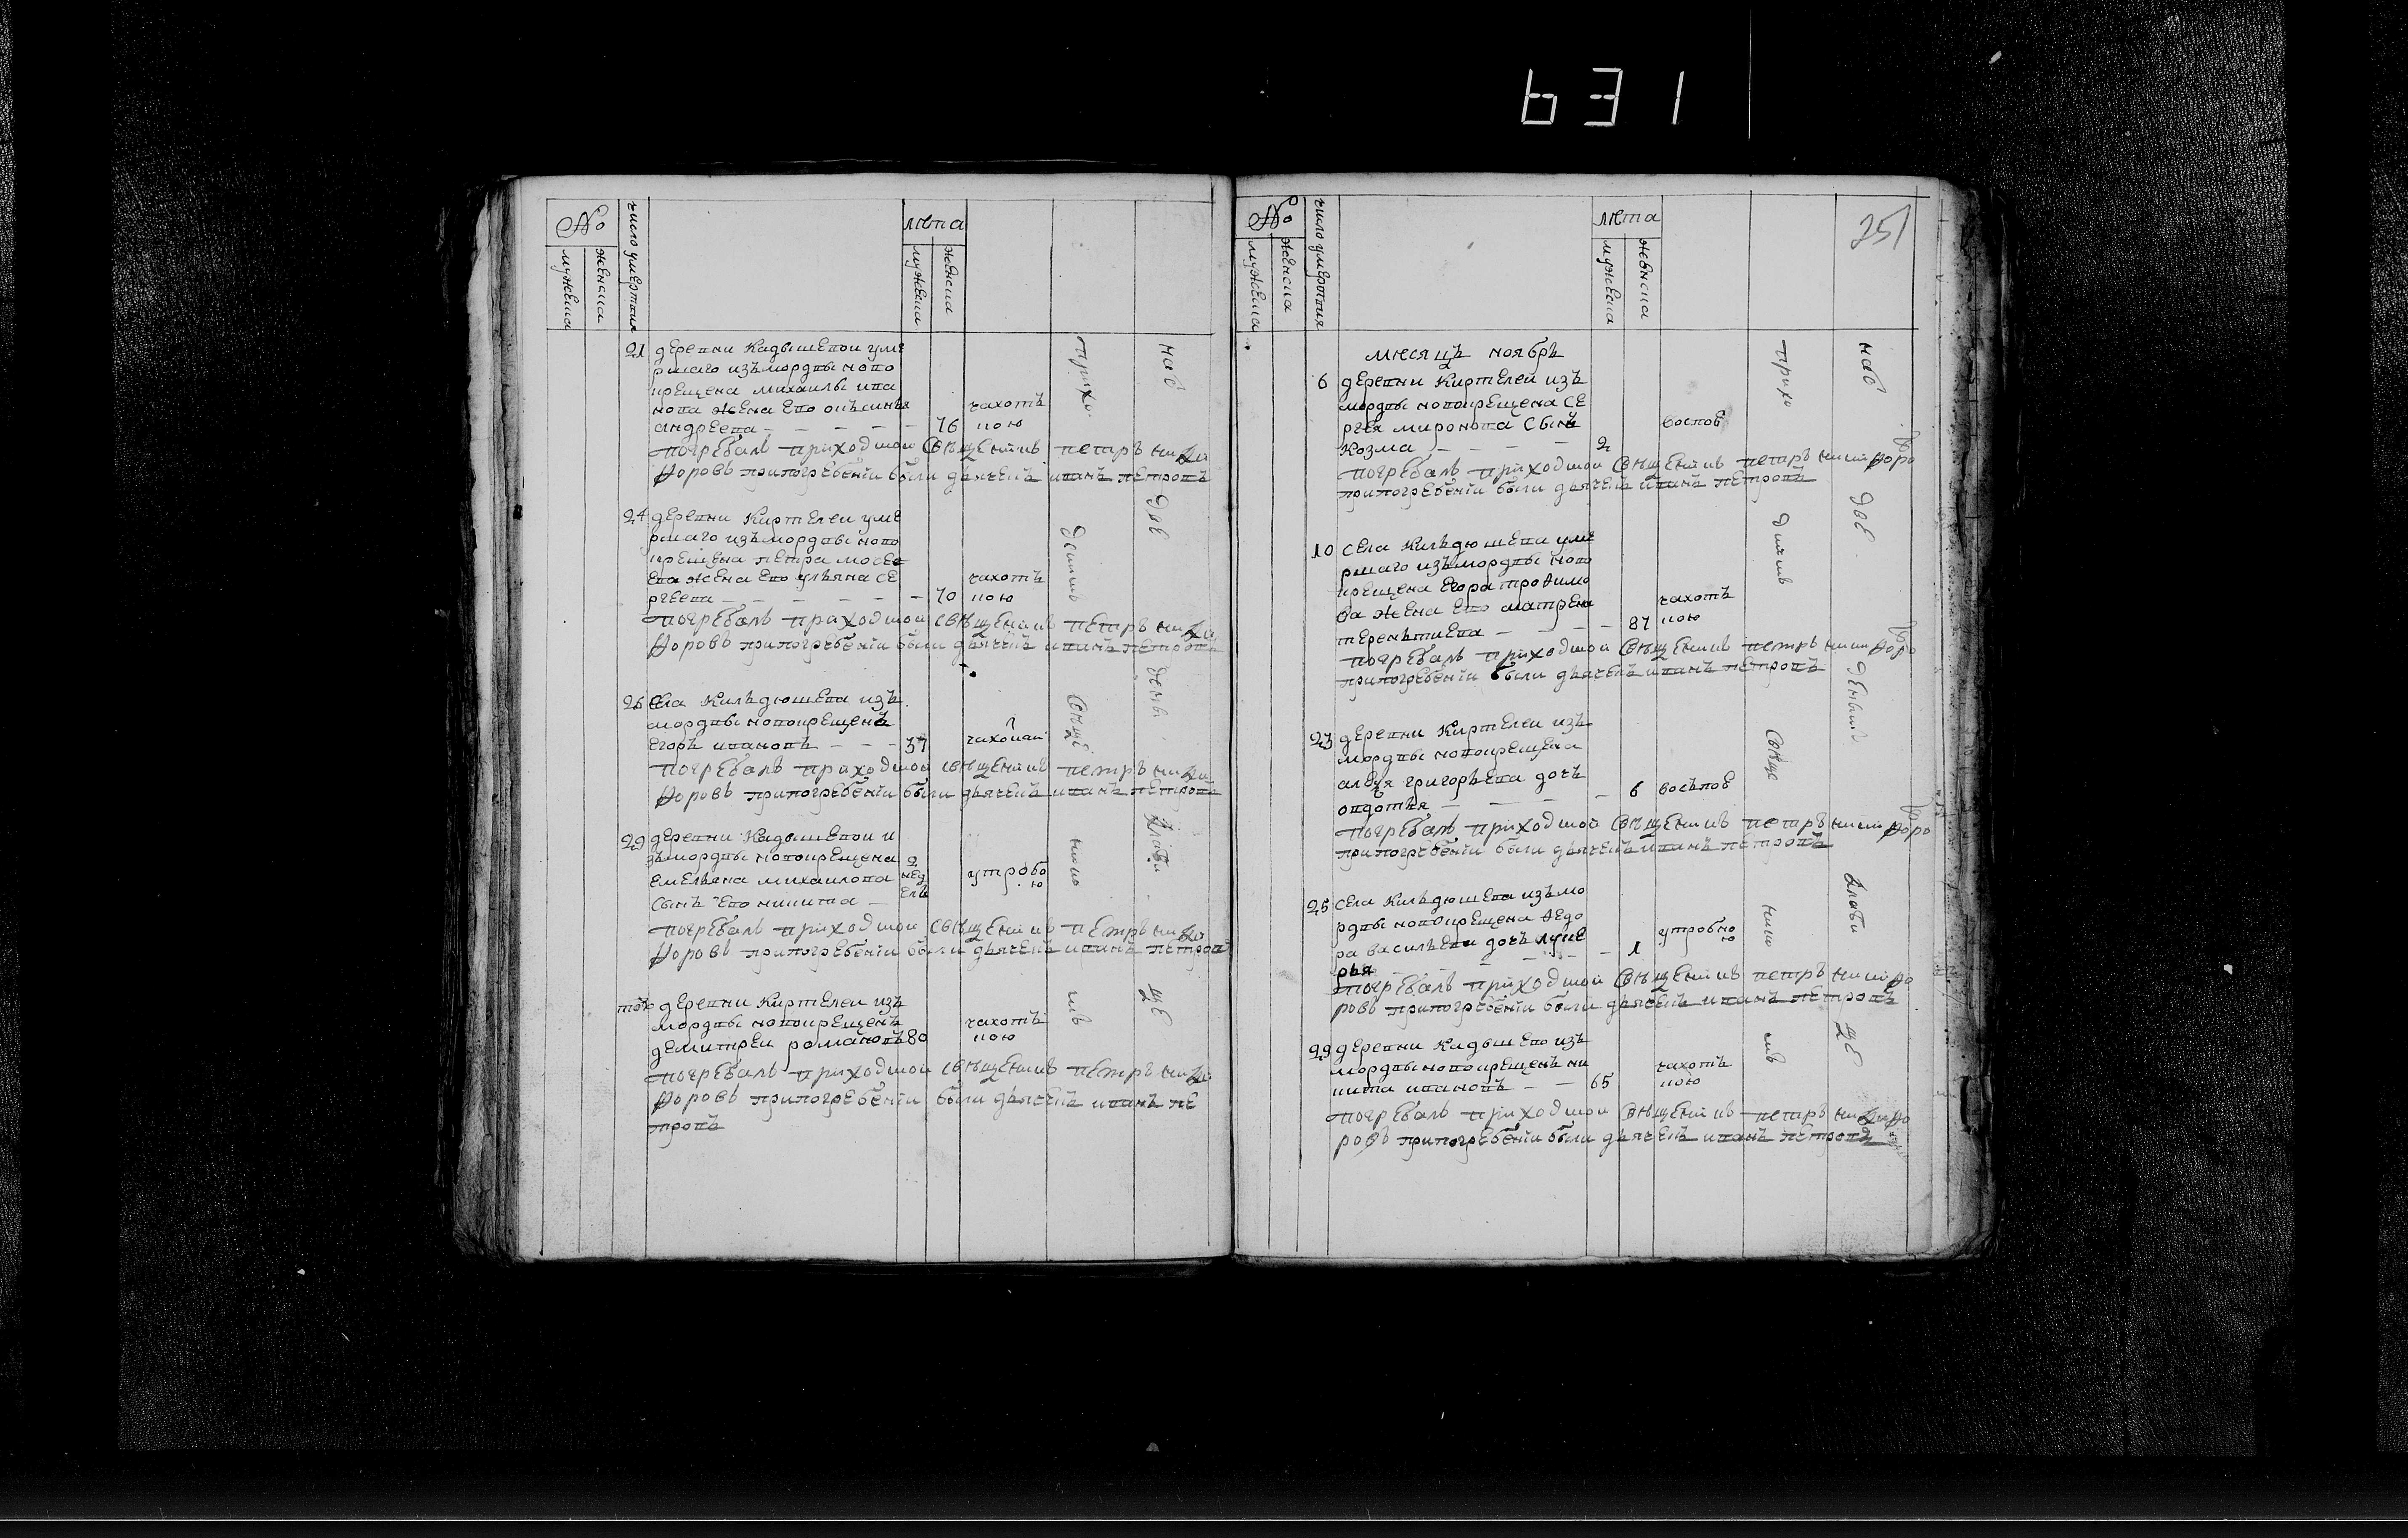 631
№
мужеска
женска
число умертвия
лета
мужеска
женска
21 деревни Кадышевой уме
ршаго изъ мордвы ново
крещена михаилы ива
нова жена ево оксинья
андреева — — — — — 76 чахот
кою
погребалъ приходской свещенникъ петръ ники
форовъ при погребении были дьячекъ иванъ петровъ
24 деревни Киртелеи уме
ршаго изъ мордвы ново
крещена петра мосее
ева жена ево ульяна се
ргеева — — — — — — 70 чахотъ
кою
погребалъ приходской свещенникъ петръ ники
форовъ при погребении были дьячекъ иванъ петровъ
26 села Кильдюшева изъ
мордвы новокрещенъ
егоръ ивановъ — — — 37
погребалъ приходской свещенникъ петръ ники
форовъ при погребении были дьячекъ иванъ петровъ
29 деревни Кадышевой и
зъ мордвы новокрещена
емельяна михаилова
сынъ ево никита — 2 недель утробо
ю
погребалъ приходской свещенникъ петръ ники
форовъ при погребении были дьячекъ иванъ петровъ
тож деревни Киртелеи изъ
мордвы новокрещенъ
демитреи романовъ 80 чахотъ
кою
погребалъ приходской свещенникъ петръ ники
форовъ при погребении были дьячекъ иванъ пе
тровъ
прихо
дскимъ
свеще
нико
мъ
на
клаби
ще
251
№
мужеска
женска
число умертвия
лета
мужеска
женска
месяцъ ноябръ
6 деревни Киртелеи изъ
мордвы новокрещена се
ргея миронова сынъ
козма — — — 2 воспою
погребалъ приходской свещенникъ петръ никифоро
въ
при погребении были дьячекъ иванъ петровъ
10 села Кильдюшева уме
ршаго изъ мордвы ново
крещена егора трофимо
ва жена ево матрена
терентиева — — — — 87 чахотъ
кою
погребалъ приходской свещенникъ петръ никифоро
въ
при погребении были дьячекъ иванъ петровъ
23 деревни Киртелеи изъ
мордвы новокрещена
алеѯея григорьева дочь
овдотья — — — — 6
погребалъ приходской свещенникъ петръ никифоро
въ
при погребении были дьячекъ иванъ петровъ
25 села Кильдюшева изъ мо
рдвы новокрещена федо
ра васильева дочь луке
рья — — — 1 утробно
ю
погребалъ приходской свещенникъ петръ никифо
ровъ при погребении были дьячекъ иванъ петровъ
29 деревни Кадышево изъ
мордвы новокрещенъ ни
кита ивановъ — — 65 чахотъ
кою
погребалъ приходской свещенникъ петръ никифо
ровъ при погребении были дьячекъ иванъ петровъ
прихо
свеще
нико
мъ
на
клаби
ще